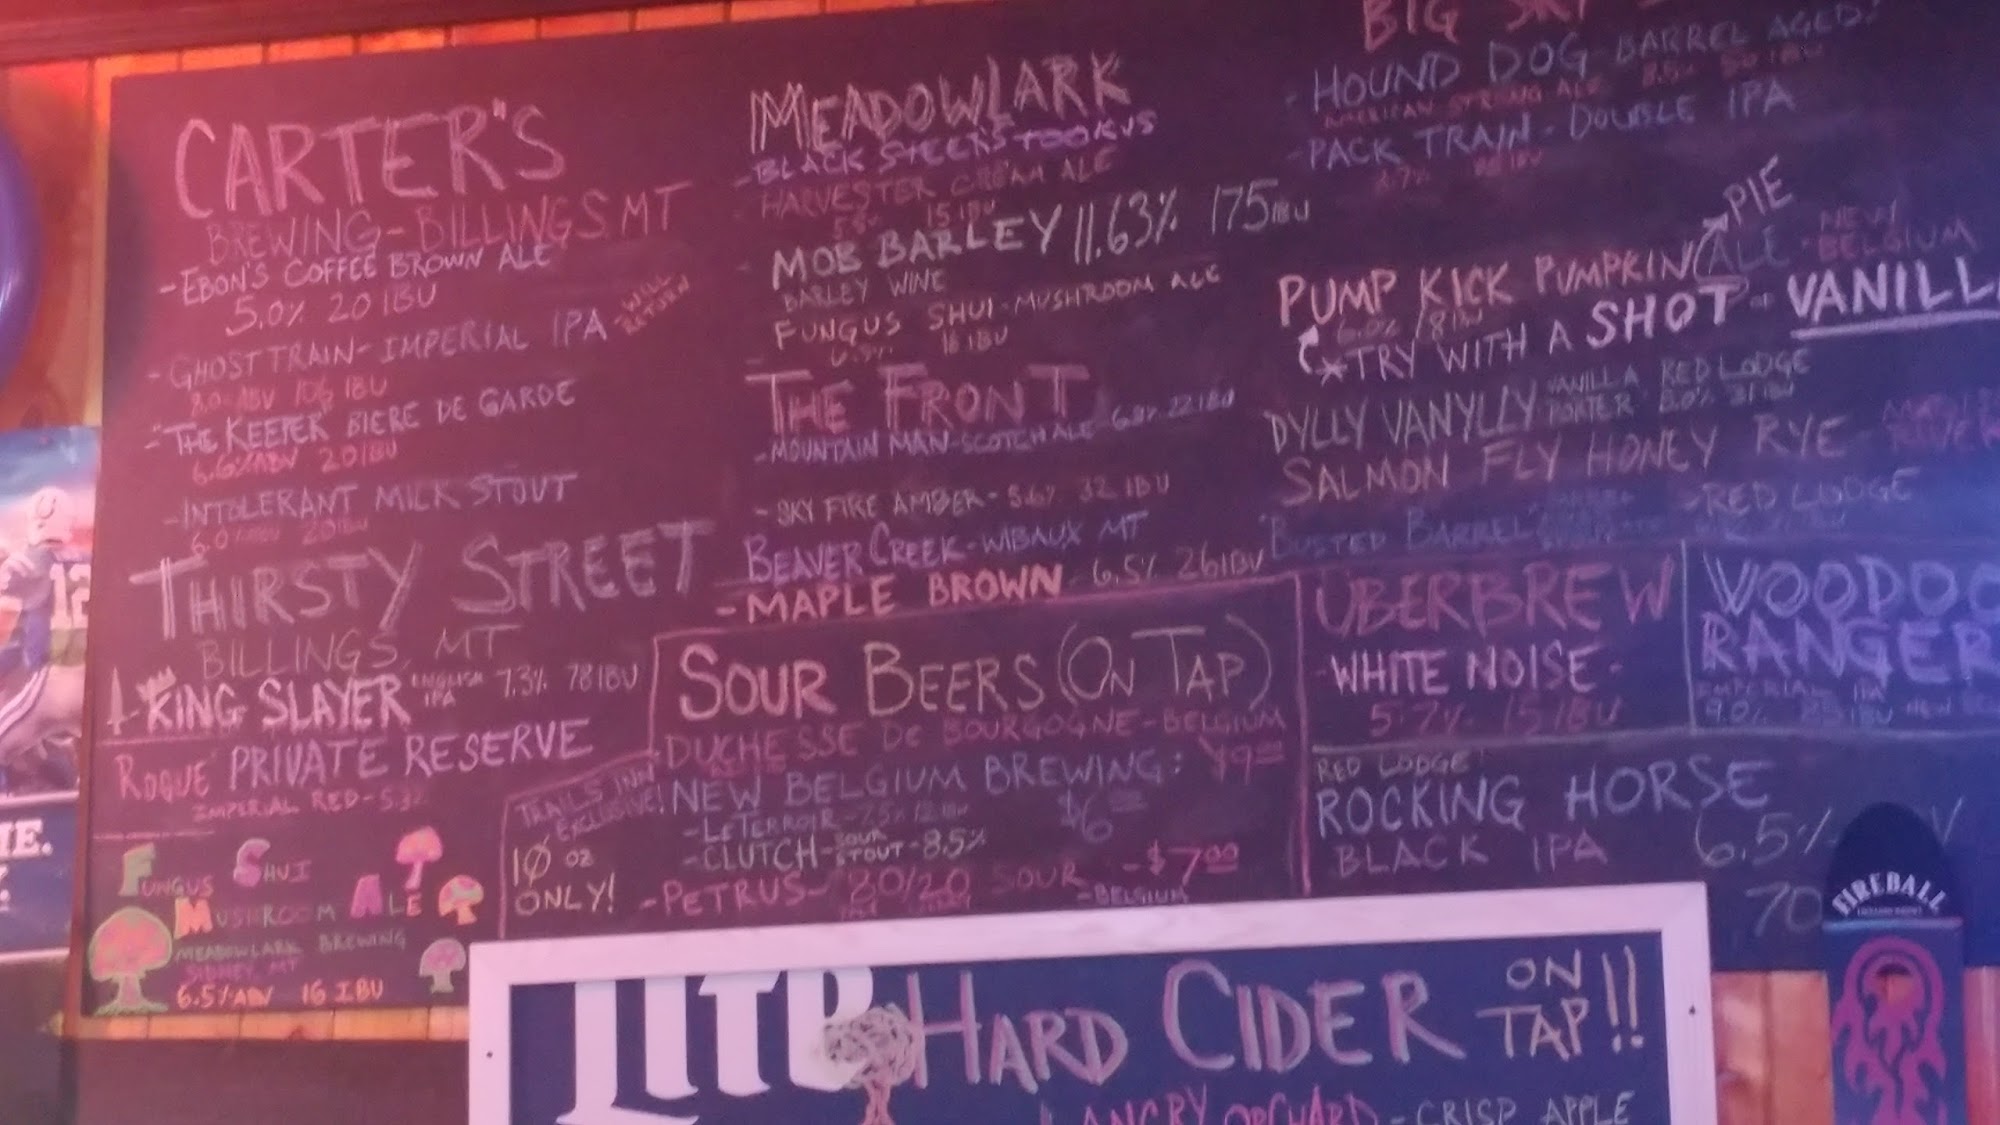 CARTER'S
BREWING - BILLINGS, MT
- EBON'S COFFEE BROWN ALE
5.0% 20 IBU
- GHOST TRAIN - IMPERIAL IPA - WILL RETURN
8.0% ABV 106 IBU
- "THE KEEPER" BIERE DE GARDE
6.6% ABV 20 IBU
- INTOLERANT MILK STOUT
6.0% ABV 20 IBU
THIRSTY STREET
BILLINGS, MT
KING SLAYER ENGLISH IPA 7.3% 78 IBU
ROGUE PRIVATE RESERVE
IMPERIAL RED -
FUNGUS SHUI
MUSHROOM ALE
MEADOWLARK BREWING
SIDNEY, MT
6.5% ABV 16 IBU
MEADOWLARK
- BLACK STEER'S TOOKUS
HARVESTER CREAM ALE
15 IBU
- MOB BARLEY 11.63% 175 IBU
BARLEY WINE
FUNGUS SHUI - MUSHROOM ALE
16 IBU
THE FRONT
- MOUNTAIN MAN - SCOTCH ALE - 6.8% 22 IBU
- SKY FIRE AMBER - 5.6% 32 IBU
BEAVER CREEK - WIBAUX MT
- MAPLE BROWN - 6.5% 26 IBU
SOUR BEERS (ON TAP)
DUCHESSE DE BOURGOGNE - BELGIUM
$9.00
TRAILS INN EXCLUSIVE!
NEW BELGIUM BREWING: $6.00
- LE TERROIR - 7.5%
- CLUTCH - SOUR STOUT - 8.5%
10 OZ
ONLY!
- PETRUS - 80/20 SOUR - $7.00
- BELGIUM
BIG SKY
- HOUND DOG - BARREL AGED
AMERICAN STRONG ALE 8.5% 50 IBU
- PACK TRAIN - DOUBLE IPA
PIE
PUMP KICK PUMPKIN ALE - NEW BELGIUM
6.0% 18 IBU
* TRY WITH A SHOT OF VANILL
DYLLY VANYLLY VANILLA PORTER RED LODGE
8.0% 31 IBU
SALMON FLY HONEY RYE
"BUSTED BARREL" - RED LODGE
UBERBREW
- WHITE NOISE -
5.7% 15 IBU
VOODOO
RANGER
IMPERIAL IPA
9.0% 85 IBU NEW
RED LODGE
ROCKING HORSE
BLACK IPA 6.5%
70
FIREBALL
Lite
HARD CIDER ON TAP!!
ANGRY ORCHARD - CRISP APPLE
12